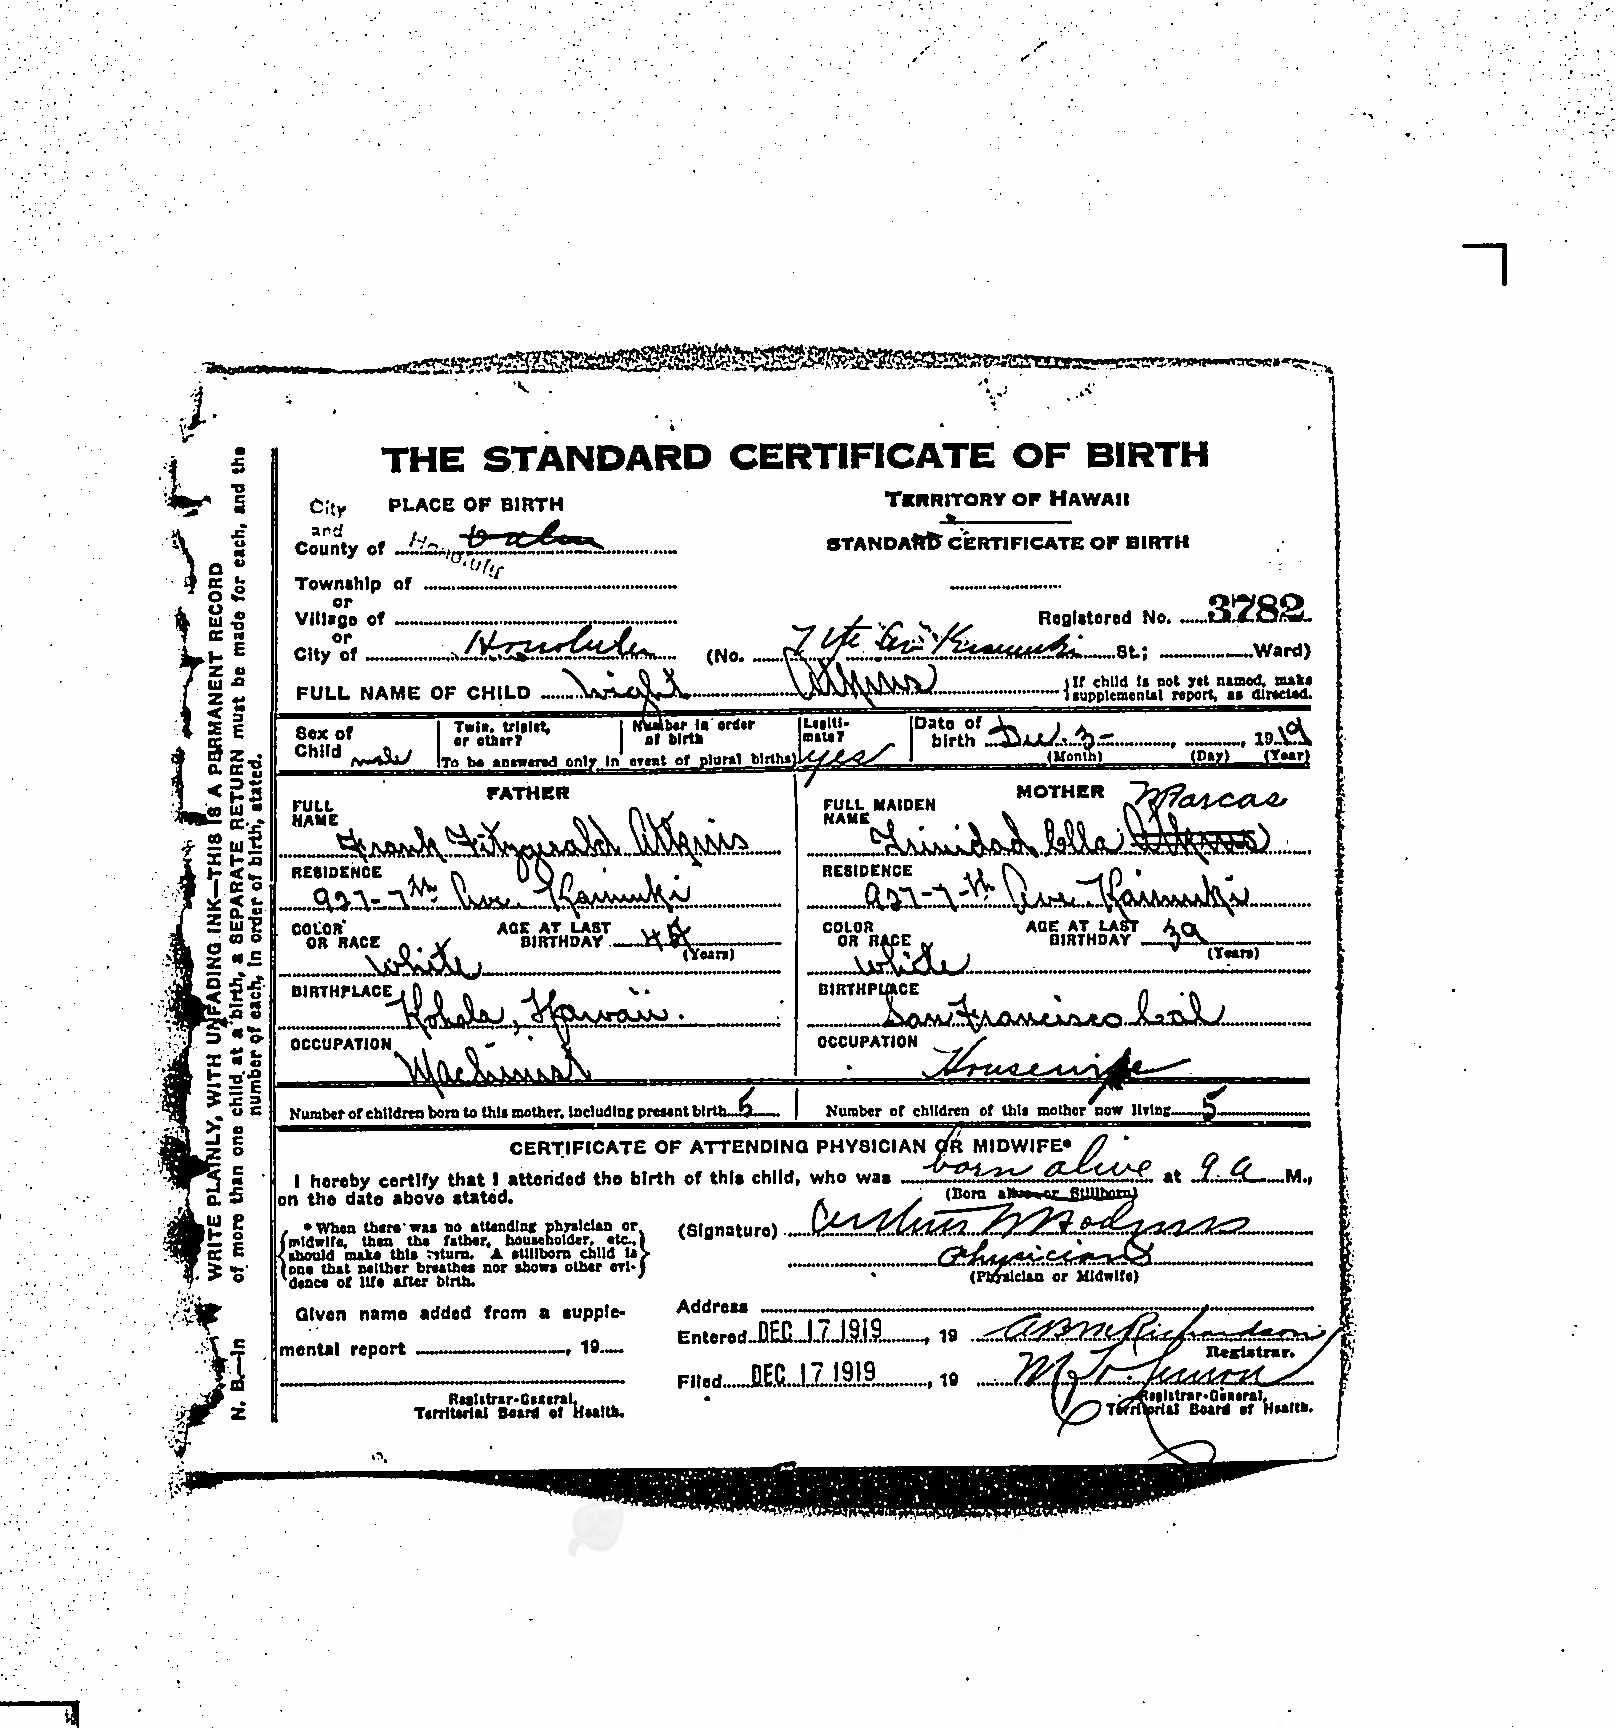 THE STANDARD CERTIFICATE OF BIRTH
City PLACE OF BIRTH
and
County of Honolulu Oahu
Township of
or
Village of
or
City of Honolulu
TERRITORY OF HAWAII
STANDARD CERTIFICATE OF BIRTH
Registered No. 3782
(No. 7th Ave Kaimuki St.; Ward)
FULL NAME OF CHILD Wight Atkins
{If child is not yet named, make
supplemental report, as directed.
Sex of Child male
Twin, triplet, or other?
Number in order of birth
(To be answered only in event of plural births)
Legitimate? yes
Date of birth Dec. 3- , 1919
(Month) (Day) (Year)
FATHER
FULL NAME
Frank Fitzgerald Atkins
RESIDENCE
927-7th Ave. Kaimuki
COLOR OR RACE White
AGE AT LAST BIRTHDAY (Years)
BIRTHPLACE Kohala, Hawaii.
OCCUPATION
Machinist
MOTHER
FULL MAIDEN NAME Marcas
Trinidad Ella Atkins
RESIDENCE
927-7-th Ave. Kaimuki
COLOR OR RACE White
AGE AT LAST BIRTHDAY 39 (Years)
BIRTHPLACE
San Francisco Cal
OCCUPATION
Housewife
Number of children born to this mother, including present birth 5
Number of children of this mother now living 5
CERTIFICATE OF ATTENDING PHYSICIAN OR MIDWIFE*
I hereby certify that I attended the birth of this child, who was born alive at 9 a M.,
(Born alive or Stillborn)
on the date above stated.
* When there was no attending physician or
midwife, then the father, householder, etc.,
should make this return. A stillborn child is
one that neither breathes nor shows other evi-
dence of life after birth.
(Signature) Hodgins
Physician
(Physician or Midwife)
Given name added from a supple-
mental report , 19
Registrar-General,
Territorial Board of Health.
Address
Entered DEC 17 1919, 19 Richardson
Registrar.
Filed DEC 17 1919, 19
Registrar-General,
Territorial Board of Health.
WRITE PLAINLY, WITH UNFADING INK—THIS IS A PERMANENT RECORD
N. B.—In of more than one child at a birth, a SEPARATE RETURN must be made for each, and the
number of each, in order of birth, stated.